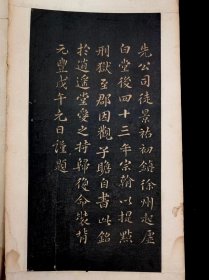 先公司徒景祐初鎮徐州起虛
白堂後四十三年宗翰以提點
刑獄至郡因觀子瞻自書此銘
於逍遙堂愛之持歸復命裝背
元豐戊午元日謹題